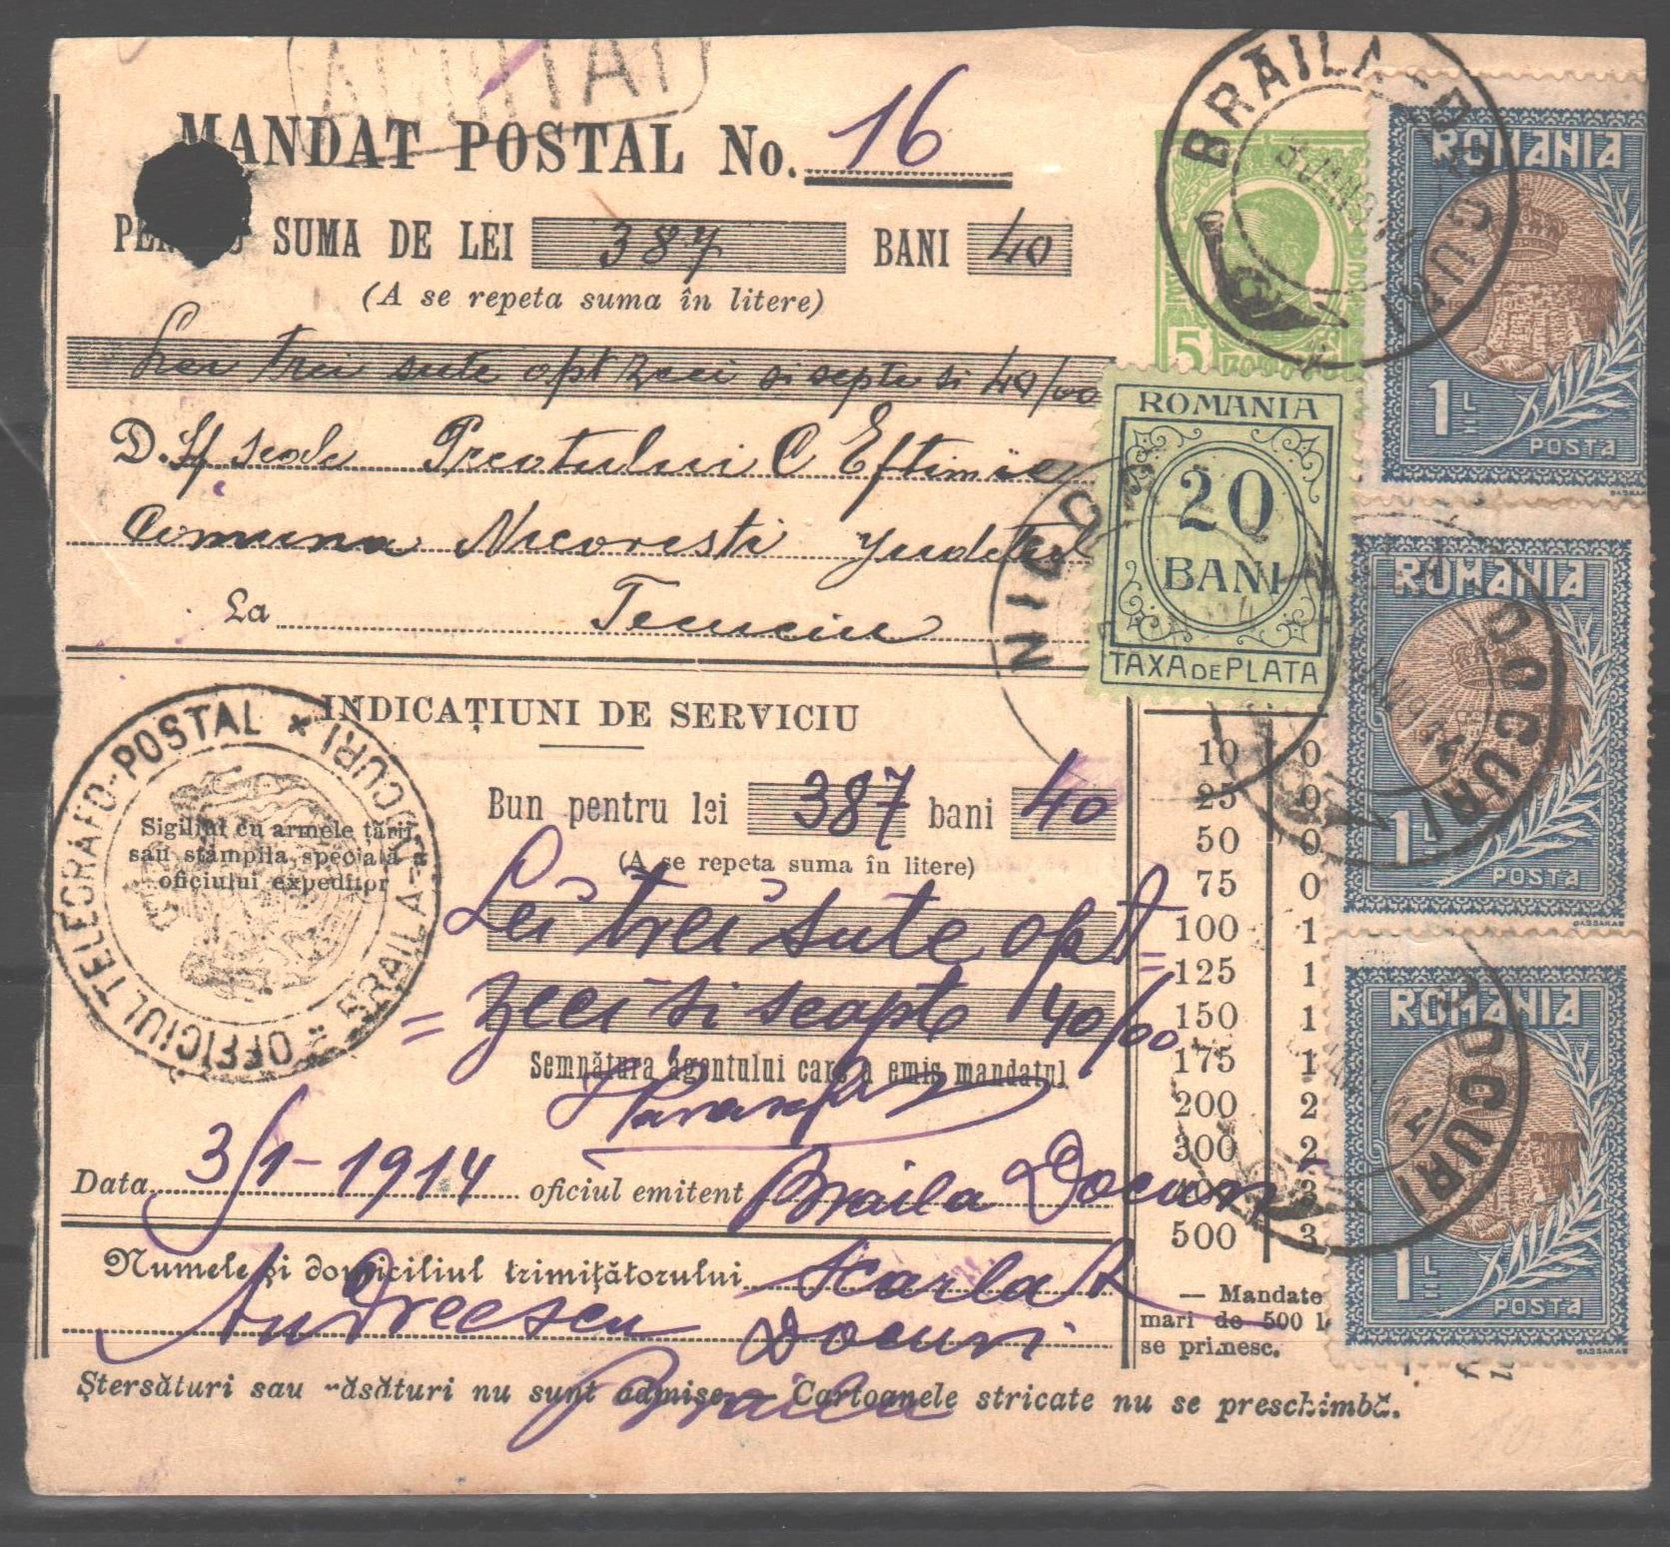 ACHITAT
MANDAT POSTAL No. 16
SUMA DE LEI 387 BANI 40
(A se repeta suma în litere)
Lei trei sute opt zeci si septe si 40/00
D. Sf scole Preotului C Eftimie
Comuna Nicoresti Judetul
La Tecuciu
INDICAȚIUNI DE SERVICIU
Bun pentru lei 387 bani 40
(A se repeta suma în litere)
Lei trei sute opt=
=zeci si seapte 40/00
Semnătura agentului care a emis mandatul
Data 3/1-1914 oficiul emitent Braila Docuri
Numele și domiciliul trimițătorului Scarlat
Andreescu Docuri
Braila
Ștersături sau răsături nu sunt admise. — Cartoanele stricate nu se preschimbă.
OFFICIUL TELEGRAFO-POSTAL
BRAILA-DOCURI
Sigiliul cu armele țării
sau stampila specială a
oficiului expeditor
BRĂILA
5
ROMANIA
20
BANI
TAXA DE PLATA
NICO
ROMANIA
1 L
POSTA
ROMANIA
1 L
POSTA
BASSARAB
DOCURI
ROMANIA
1 L
POSTA
BASSARAB
DOCURI
10 0
25 0
50 0
75 0
100 1
125 1
150 1
175 1
200 2
300 2
400 3
500 3
— Mandate
mari de 500 l
se primesc.